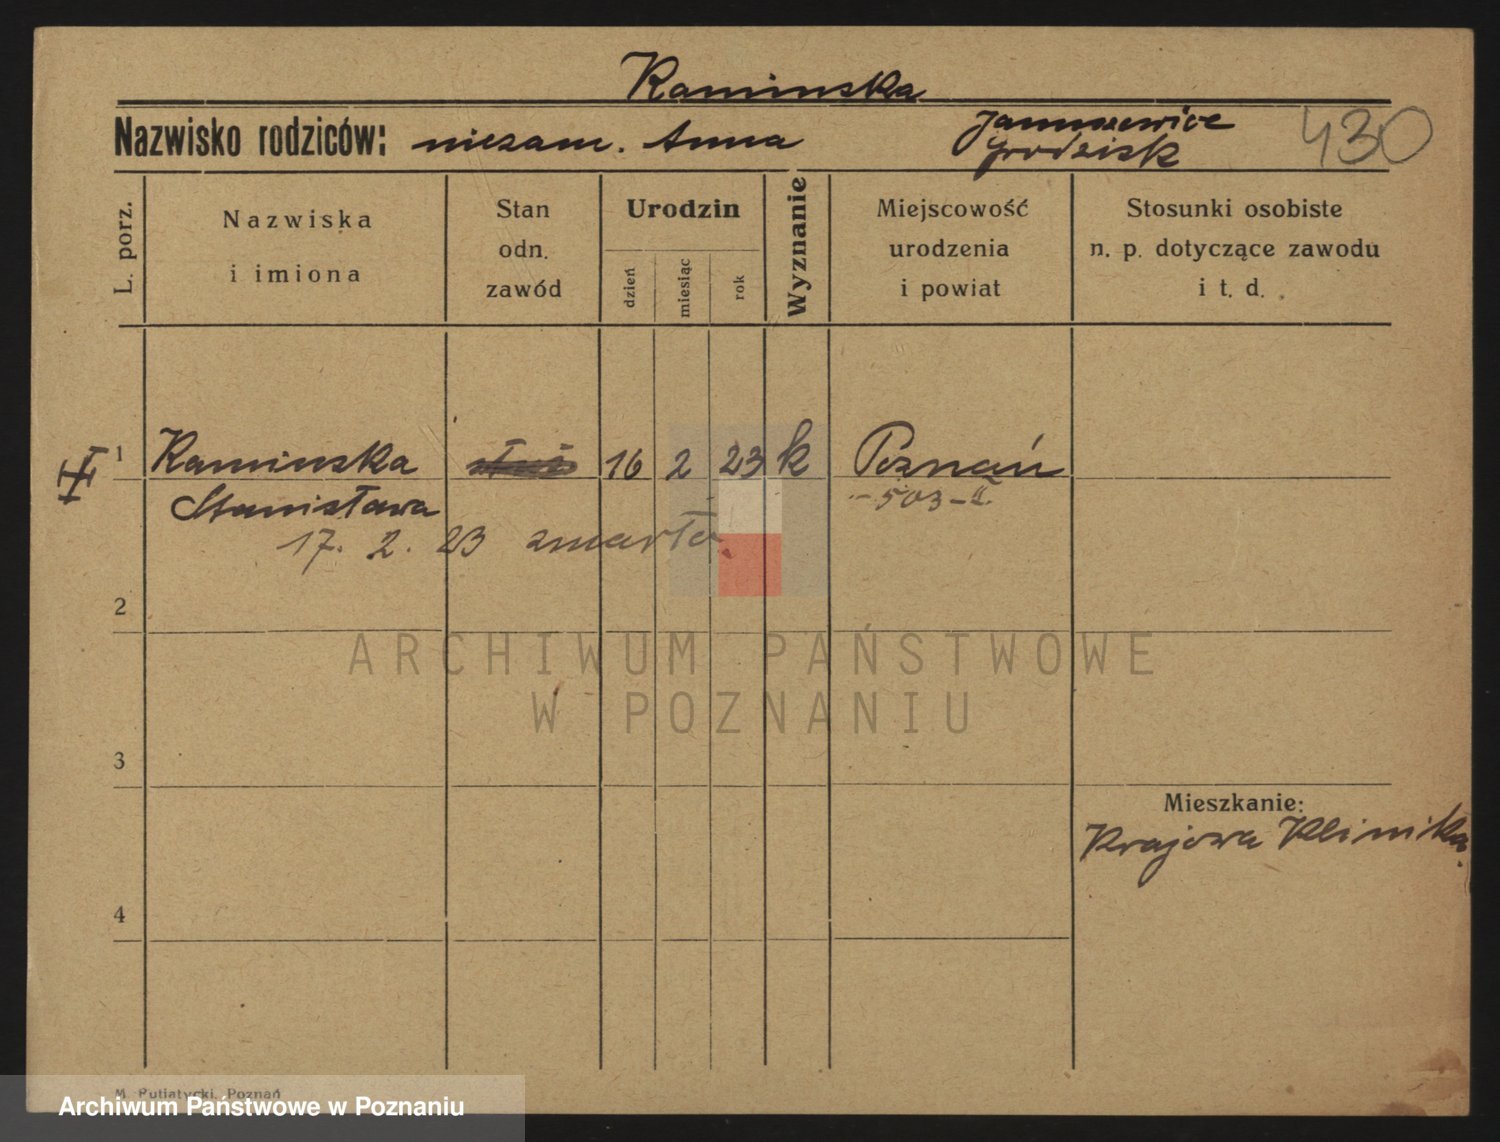 Kaminska
Nazwisko rodziców: niezam. Anna
Januszewice
Grodzisk
430
L. porz.
Nazwiska
i imiona
Stan
odn.
zawód
Urodzin
dzień
miesiąc
rok
Wyznanie
Miejscowość
urodzenia
i powiat
Stosunki osobiste
n. p. dotyczące zawodu
i t. d.
1 Kaminska 16 2 23 k Poznań
Stanisława
-503-II.
17. 2. 23 zmarła.
2
ARCHIWUM PAŃSTWOWE
W POZNANIU
3
Mieszkanie:
Krajowa Klinika.
4
M. Putiatycki, Poznań
Archiwum Państwowe w Poznaniu